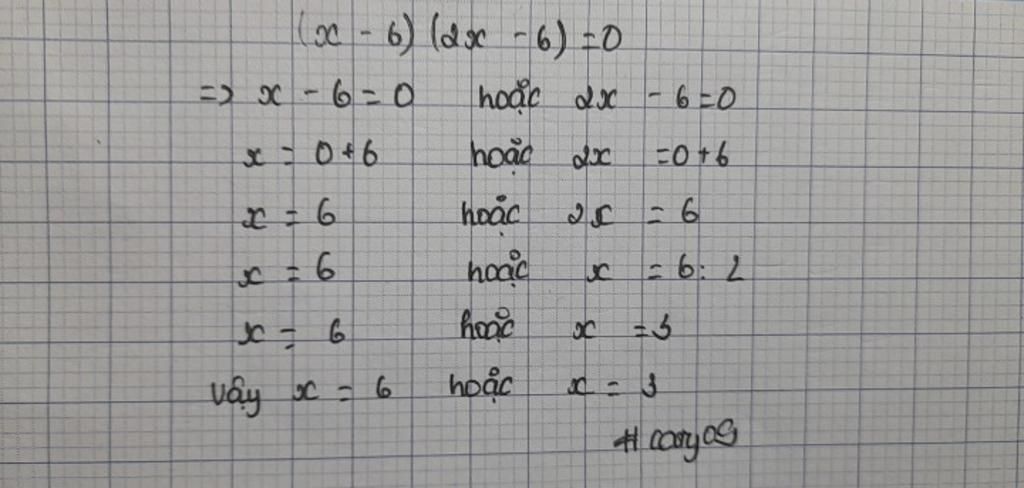 (x - 6) (2x - 6) = 0
=> x - 6 = 0 hoặc 2x - 6 = 0
x = 0 + 6 hoặc 2x = 0 + 6
x = 6 hoặc 2x = 6
x = 6 hoặc x = 6 : 2
x = 6 hoặc x = 3
Vậy x = 6 hoặc x = 3